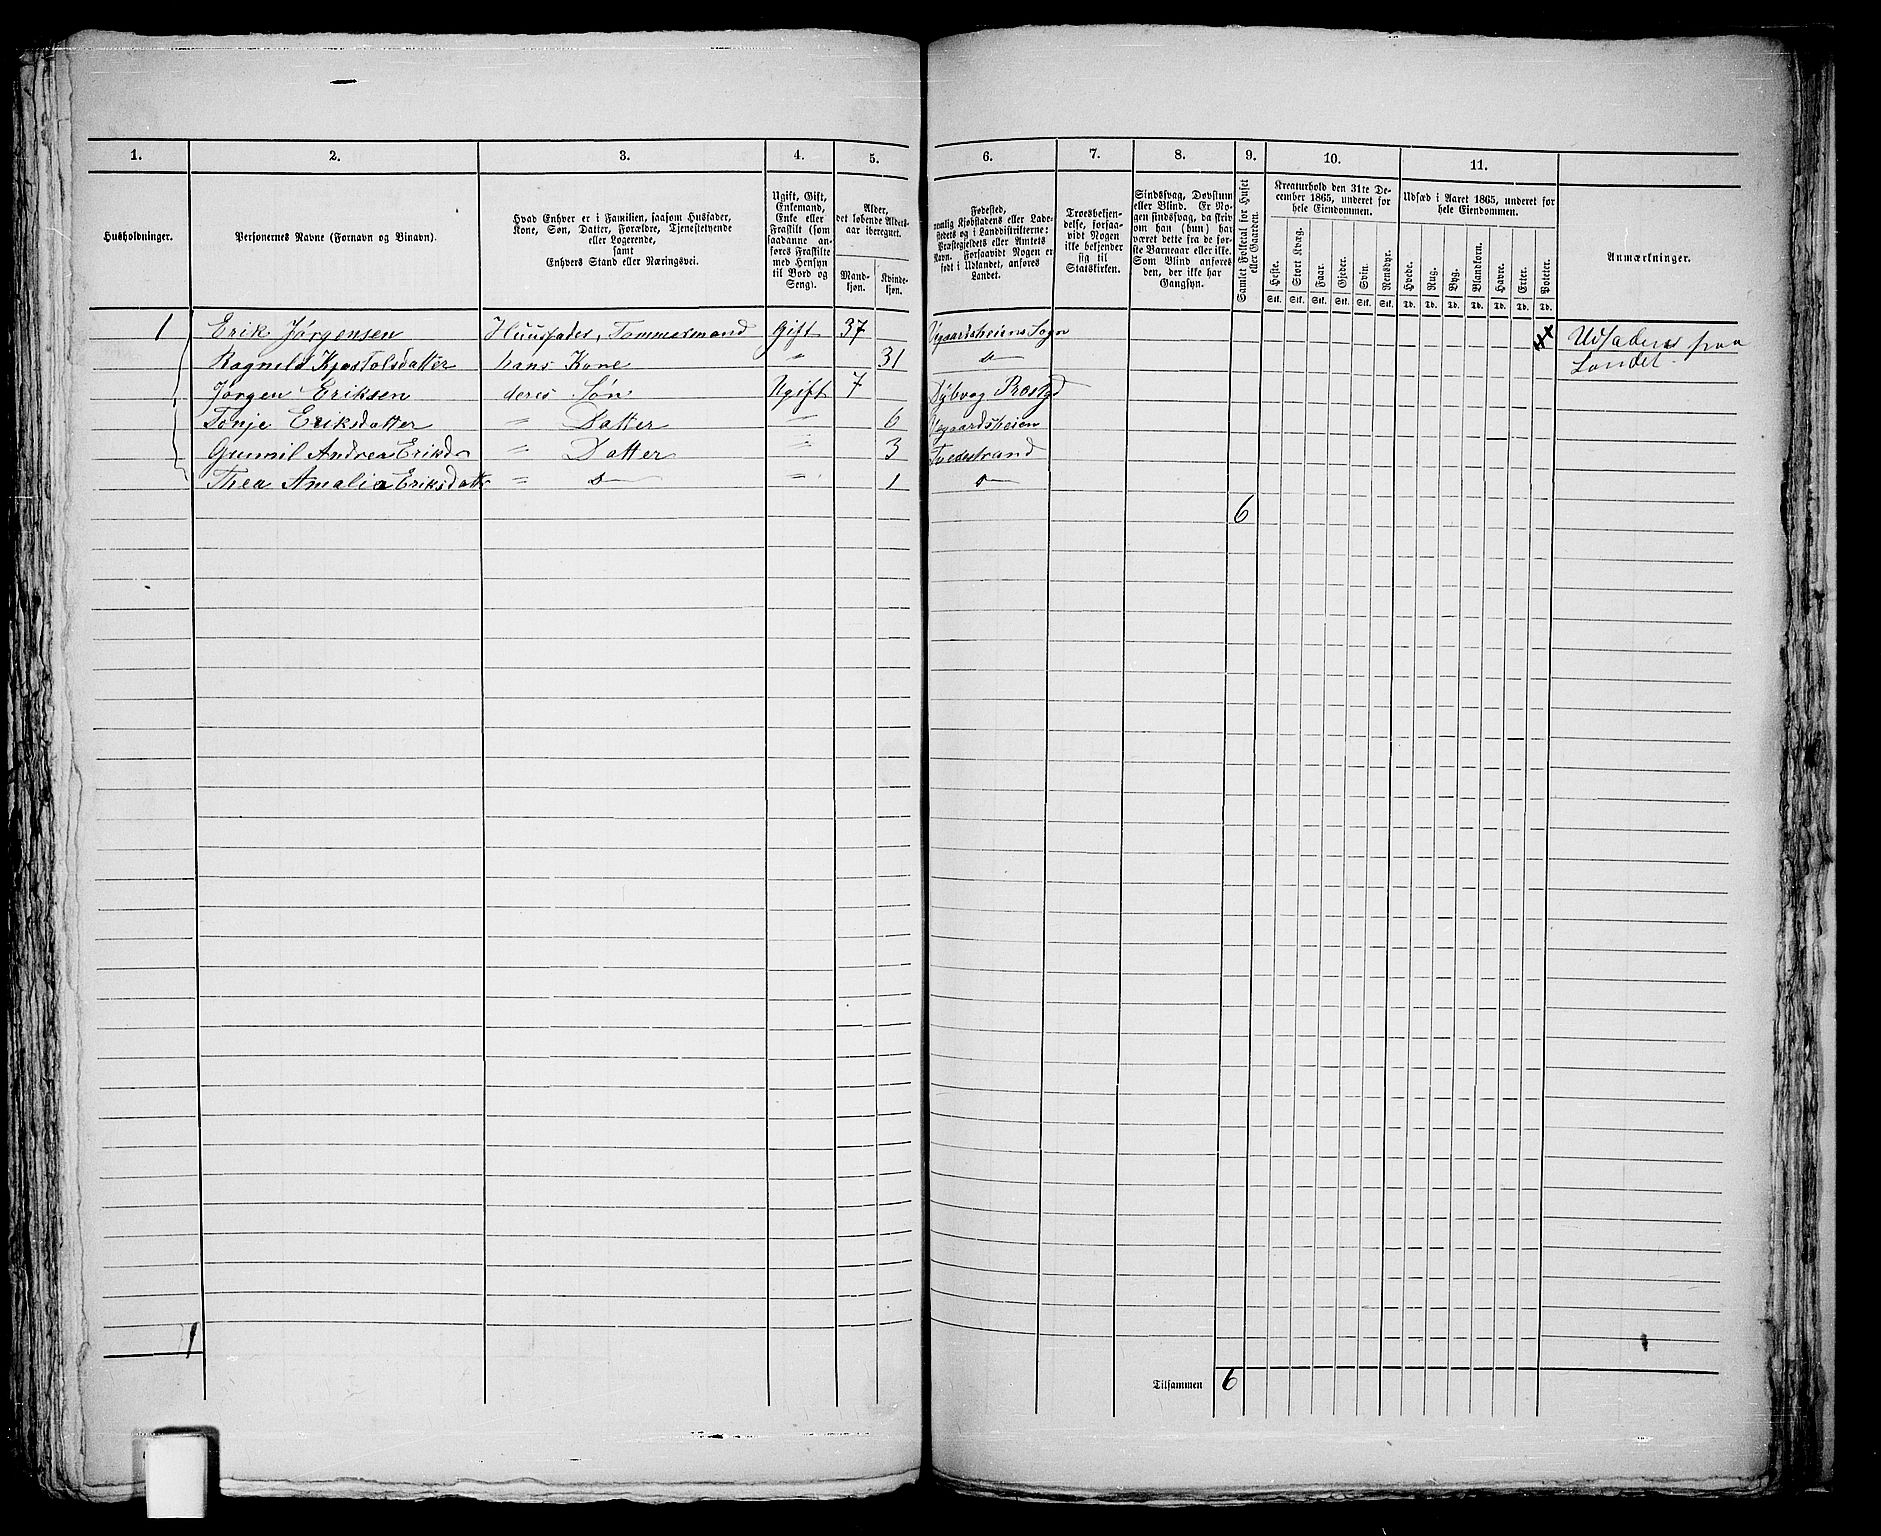 1. 2. 3. 4. 5. 6. 7. 8. 9. 10. 11.
Husholdninger.
Personernes Navne (Fornavn og Binavn).
Hvad Enhver er i Familien, saasom Husfader,
Kone, Søn, Datter, Forældre, Tjenestetyende
eller Logerende,
samt
Enhvers Stand eller Næringsvei.
Ugift, Gift,
Enkemand,
Enke eller
Fraskilt (som
saadanne an-
føres Fraskilte
med Hensyn
til Bord og
Seng).
Alder,
det løbende Alders-
aar iberegnet.
Mand-
kjøn.
Kvinde-
kjøn.
Fødested,
nemlig Kjøbstadens eller Lade-
stedets og i Landdistrikterne:
Præstegjeldets eller Amtets
Navn. Forsaavidt Nogen er
født i Udlandet, anføres
Landet.
Troesbekjen-
delse, forsaa-
vidt Nogen
ikke bekjender
sig til
Statskirken.
Sindssvag, Døvstum
eller Blind. Er No-
gen sindssvag, da skriv
om han (hun) har
været dette fra de før-
ste Barneaar eller ikke.
Som Blind anføres
den, der ikke har
Gangsyn.
Samlet Folketal for Huset
eller Gaarden.
Kreaturhold den 31te De-
cember 1865, underet for
hele Eiendommen.
Heste. Stort Kvæg. Faar. Gjeder. Svin. Rensdyr.
Stk. Stk. Stk. Stk. Stk. Stk.
Udsæd i Aaret 1865, underet for
hele Eiendommen.
Hvede. Rug. Byg. Blandkorn. Havre. Erter. Poteter.
Td. Td. Td. Td. Td. Td. Td.
Anmærkninger.
1 Erik Jørgensen Huusfader, Tømmermand Gift 37 Vegaardsheiens Sogn Udflådens paa
Ragnild Kjøstolsdatter hans Kone " 31 do Landet.
Jørgen Eriksen deres Søn Ugift 7 Dybvag Præstgd
Tonje Eriksdatter " Datter " 6 Vegaardsheien
Gunnil Andrea Eriksd " Datter " 3 Tvedestrand
Thea Amalia Eriksdatter " do " 1 do
6
1
Tilsammen 6